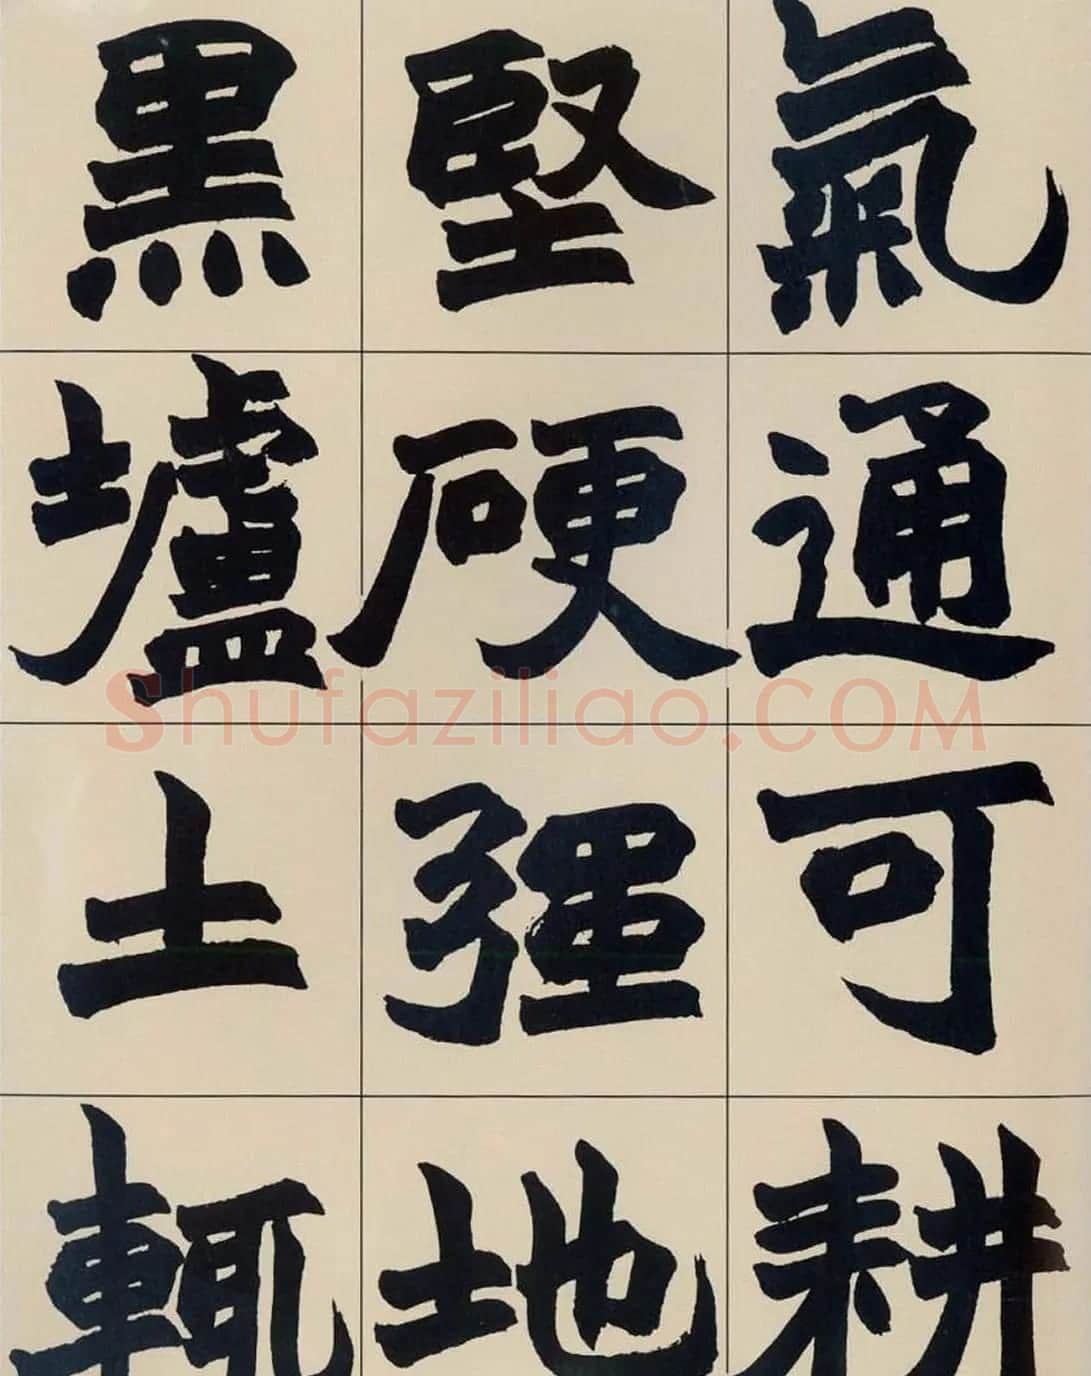 氣通可耕
堅硬彊地
黑壚土輒
Shufaziliao.COM